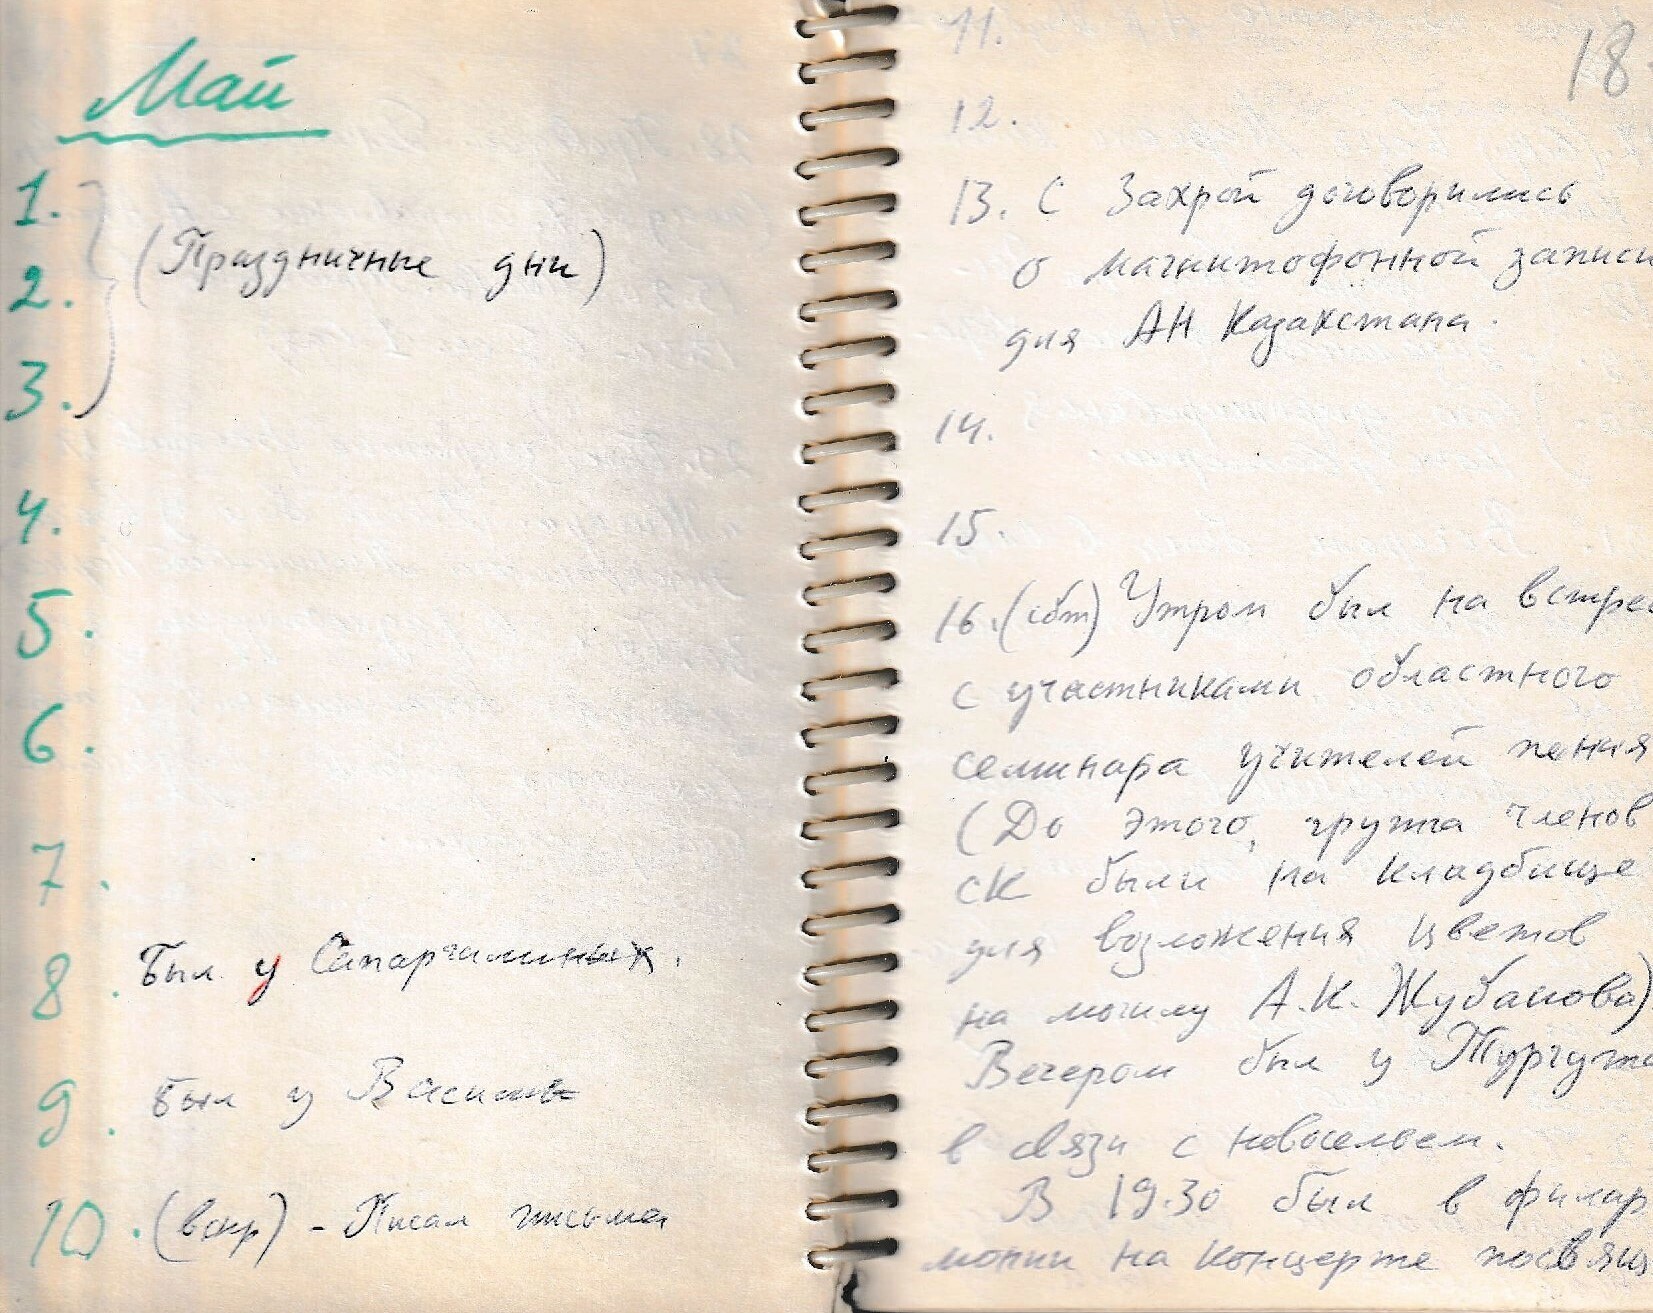 Май
1.
(Праздничные дни)
2.
3.
4.
5.
6.
7.
8. Был у
9. Был у
10. (вскр) - Писал письма
18
11.
12.
13. С Захрой договорились
о магнитофонной записи
для АН Казахстана.
14.
15.
16. (сбт) Утром был на встреч
с участниками областного
семинара учителей пения
(До этого, группа членов
СК были на кладбище
для возложения цветов
на могилу А.К. Жубанова)
Вечером был у
в связи с новосельем.
В 19.30 был в филар
монии на концерте посвящ